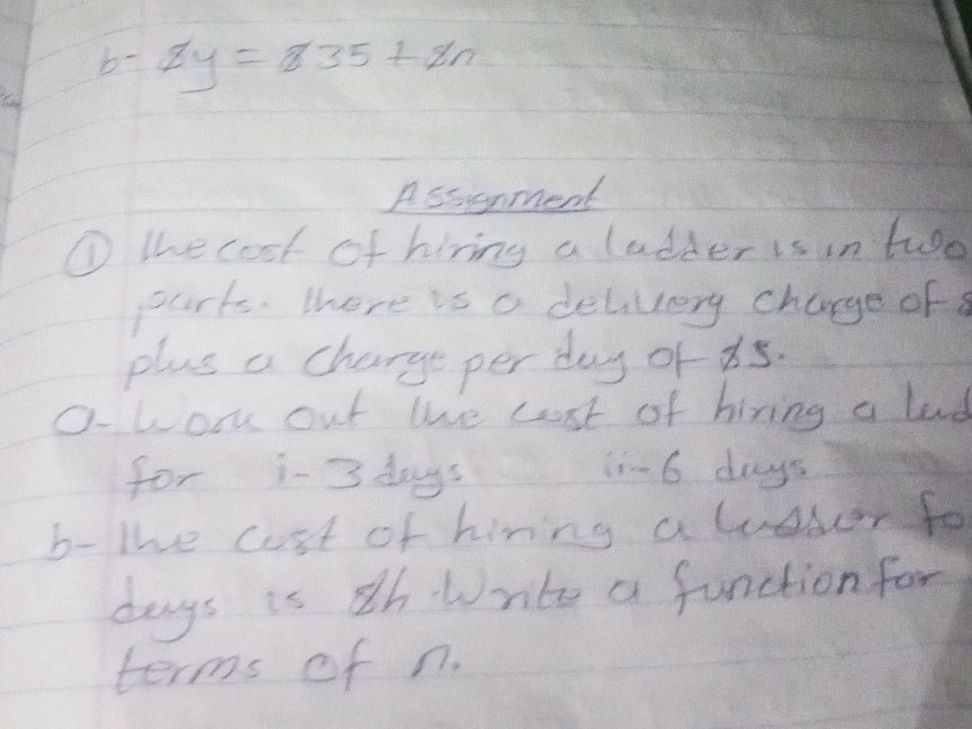 b- $y = $35 + $n
Assignment
① The cost of hiring a ladder is in two
parts. There is a delivery charge of $
plus a charge per day of $5.
a- Work out the cost of hiring a lad
for i- 3 days ii- 6 days
b- The cost of hiring a ladder fo
days is $h. Write a function for
terms of n.